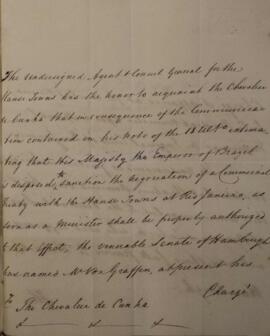 The undersigned Agent & Consul General for the
Hanse Towns has the honor to acquaint the Chevalier
de Cunha that in consequence of the Communica
tion contained in his Note of the 18 Ult° intima
ting that His Majesty the Emperor of Brazil
is disposed to sanction the negociation of a Commercial
Treaty with the Hanse Towns at Rio Janeiro, as
soon as a Minister shall be properly authorized
to that effect, the venerable Senate of Hamburgh
has named Mr Von Graffen, at present his
Chargé
To
The Chevalier de Cunha
&. &. &.